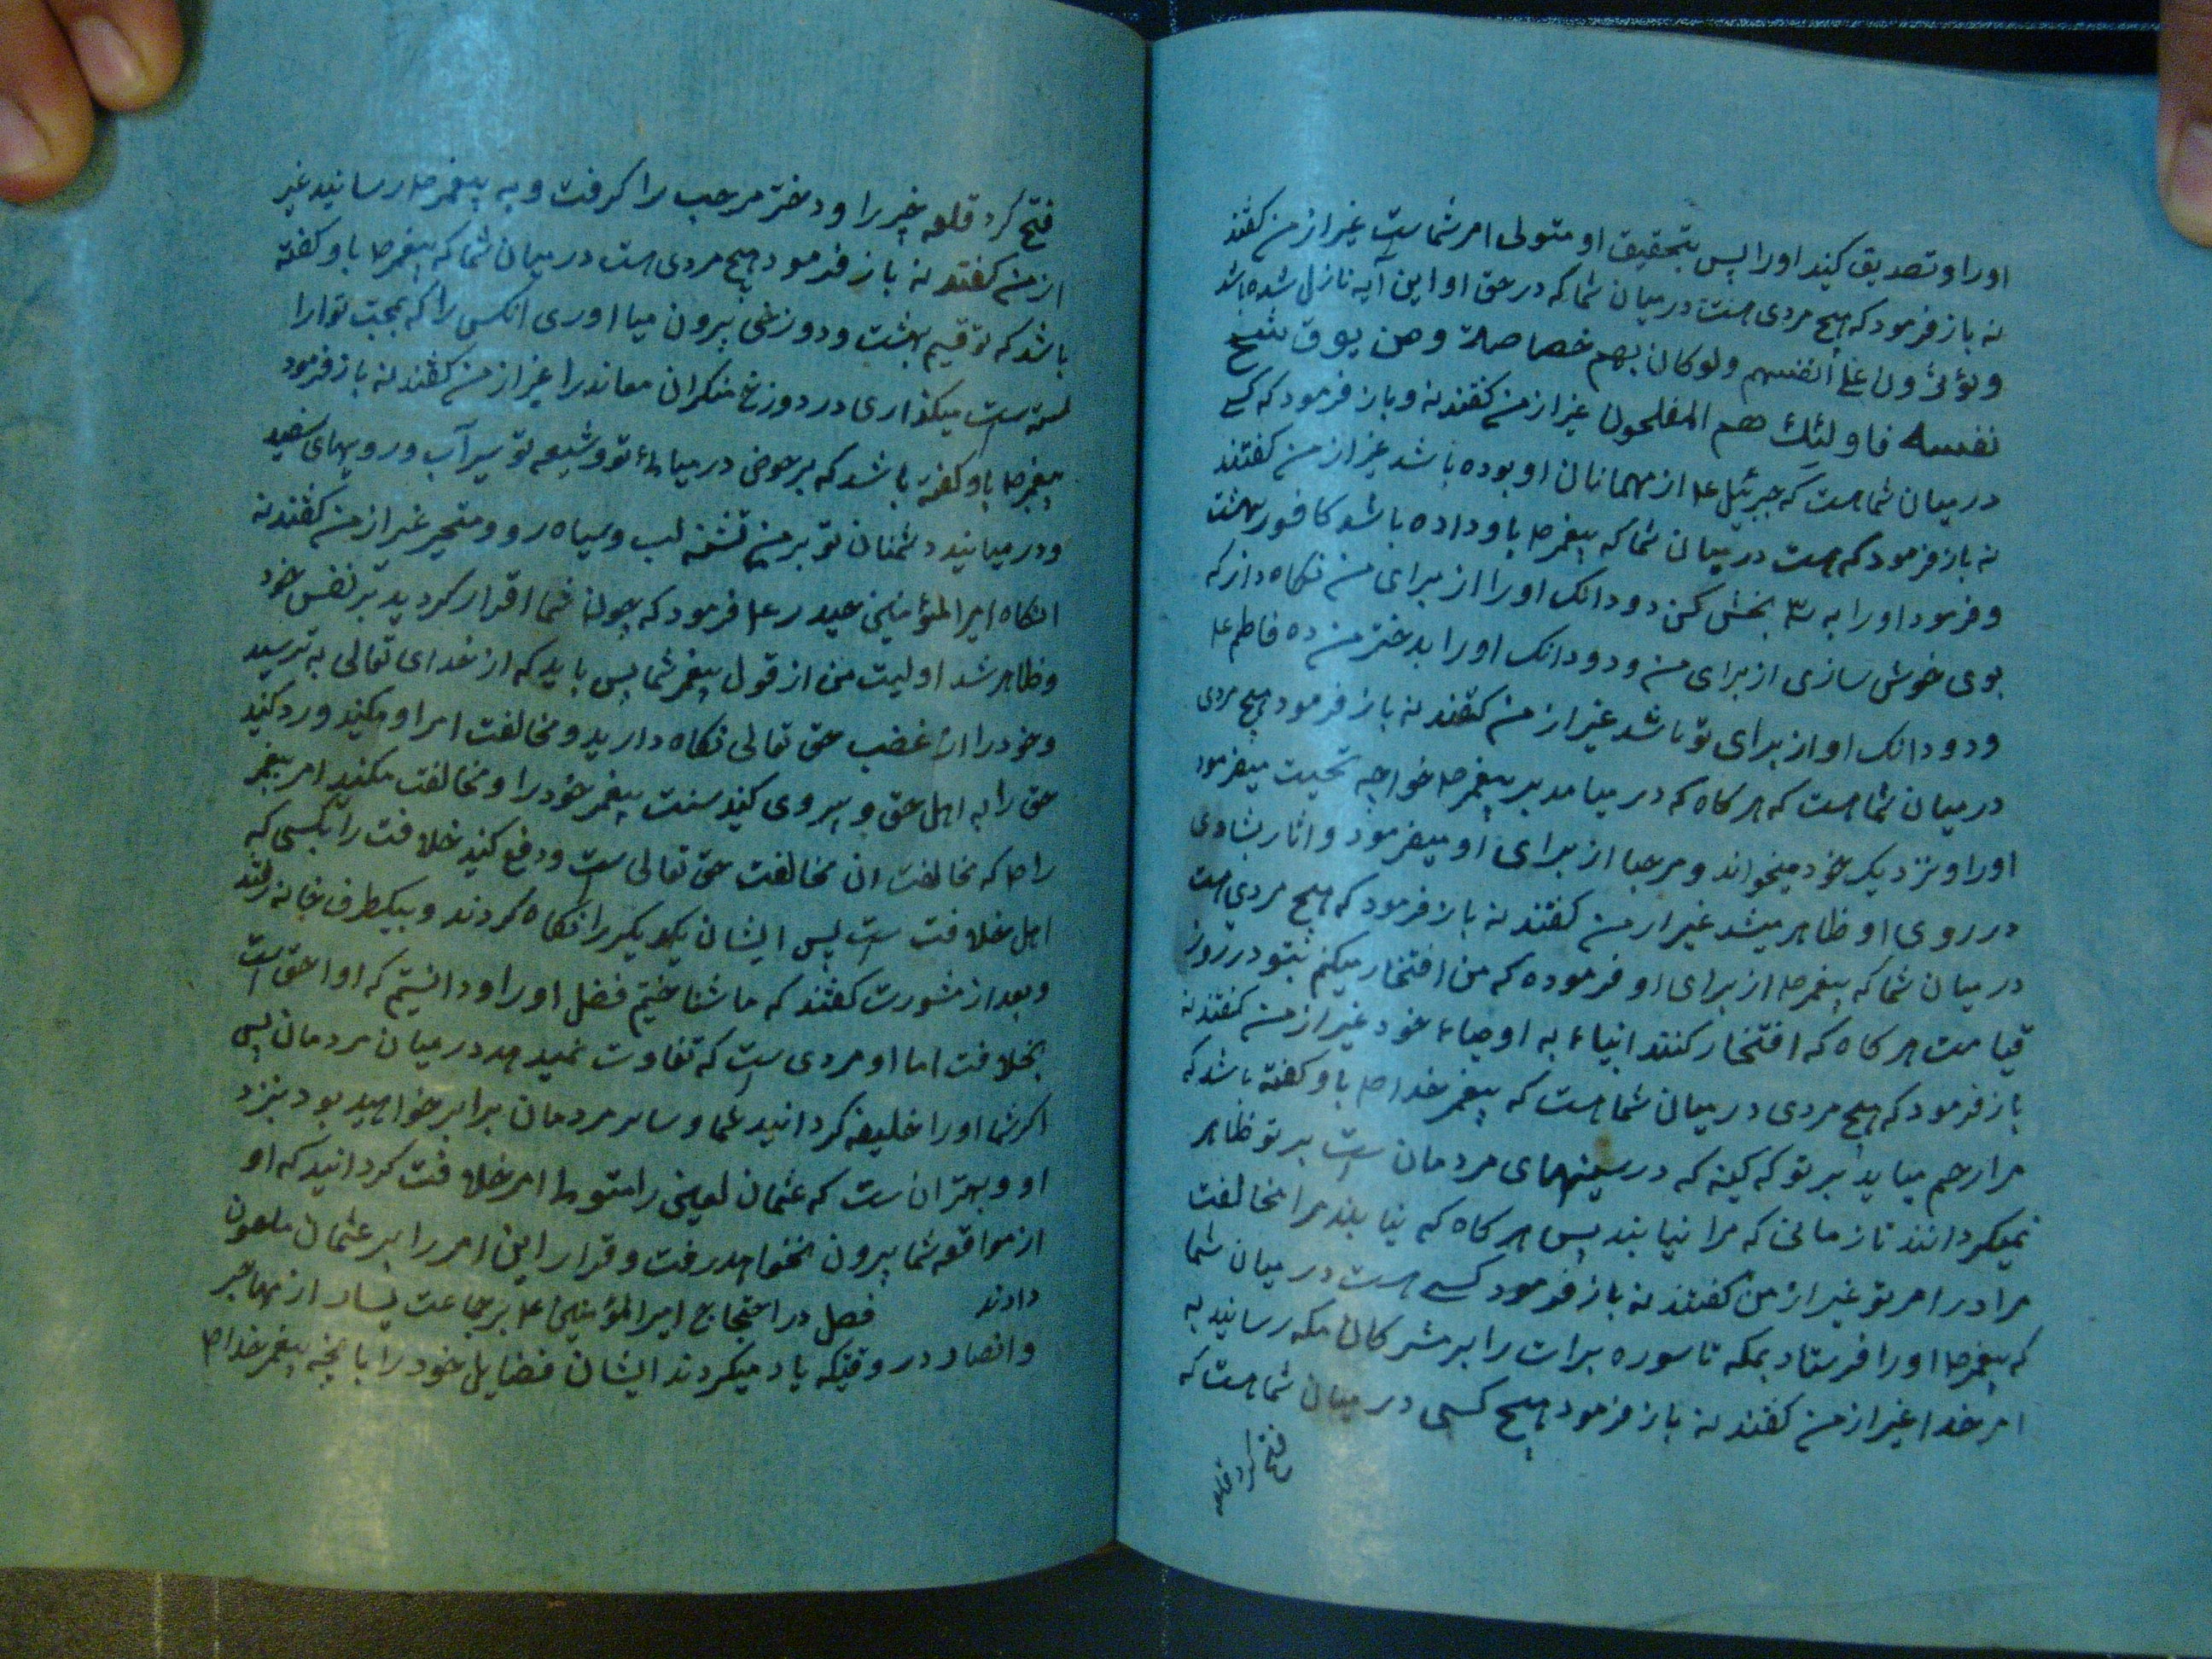 اورا و تصدیق کنید اورا پس بتحقیق او متولی امر شماست غیر از من کفتند
نه باز فرمود که هیچ مردی هست در میان شما که در حق او این آیه نازل شده باشد
ویؤثرون علی أنفسهم ولو کان بهم خصاصة ومن یوق شح
نفسه فاولئک هم المفلحون غیر از من کفتند نه و باز فرمود که کسی
در میان شما هست که جبرئیل ع از مهمانان او بوده باشد غیر از من کفتند
نه باز فرمود که هست در میان شما که پیغمبر ص باو داده باشد کافور بهشت
و فرمود اورا به ۳ بخش کن دودانک اورا از برای من نکاه دار که
بوی خوش سازی از برای من و دودانک اورا بدختر من ده فاطمه ع
و دودانک او از برای تو باشد غیر از من کفتند نه باز فرمود هیچ مردی
در میان شما هست که هر کاه که در میامد بر پیغمبر ص خواجه تحیت میفرمود
اورا و نزدیک خود میخواند و مرحبا از برای او میفرمود و اثار بشادی
در روی او ظاهر میشد غیر از من کفتند نه باز فرمود که هیچ مردی هست
در میان شما که پیغمبر ص از برای او فرموده که من افتخار میکنم بتو در روز
قیامت هر کاه که افتخار کنند انبیاء به اوصیاء خود غیر از من کفتند نه
باز فرمود که هیچ مردی در میان شما هست که پیغمبر خدا ص باو کفته باشد که
مرا رحم میاید بر تو که کینه که در سینهای مردمان ست بر تو ظاهر
نمیکردانند تا زمانی که مرا نیابند پس هر کاه که نیابند مرا مخالفت
مرا در امر تو غیر از من کفتند نه باز فرمود کسی هست در میان شما
که پیغمبر ص اورا فرستاد بمکه تا سوره برات را بر مشرکان مکه رسانید به
امر خدا غیر از من کفتند نه باز فرمود هیچ کسی در میان شما هست که
فتح کرد قلعه
فتح کرد قلعه خیبر را و دختر مرحب را کرفت و به پیغمبر ص رسانید غیر
از من کفتند نه باز فرمود هیچ مردی هست در میان شما که پیغمبر ص باو کفته
باشد که تو قسیم بهشت و دوزخی بیرون میاوری انکس را که بمحبت تو ارا
ست میکذاری در دوزخ منکران معاند را غیر از من کفتند نه باز فرمود
پیغمبر ص باو کفته باشد که بر حوض در میایند تو و شیعه تو سیرآب و رویهای سفید
و در میایند دشمنان تو بر من تشنه لب و سیاه رو و متحیر غیر از من کفتند نه
انکاه امیر المؤمنین حیدر ع فرمود که چون شما اقرار کردید بر نفس خود
و ظاهر شد اولیت من از قول پیغمبر شما پس باید که از خدای تعالی به ترسید
و خود را از غضب حق تعالی نکاه دارید و مخالفت امر او مکنید و رد کنید
حق را به اهل حق و پیروی کنید سنت پیغمبر خود را و مخالفت مکنید امر پیغمبر
را ص که مخالفت ان مخالفت حق تعالی ست و دفع کنید خلافت را بکسی که
اهل خلافت ست پس ایشان یکدیکر را نکاه کردند و بیکطرف خانه رفتند
و بعد از مشورت کفتند که ما شناختیم فضل اورا و دانستیم که او احق است
بخلافت اما او مردی ست که تفاوت نمیدهد در میان مردمان پس
اکر شما اورا خلیفه کردانید شما و سایر مردمان برابر خواهید بود بنزد
او و بهتر ان ست که عثمان لعین را متوط امر خلافت کردانید که او
از موافقه شما بیرون نخواهد رفت و قرار این امر را بر عثمان ملعون
دادند فصل در احتجاج امیر المؤمنین ع بر جماعت بسیار از مهاجر
و انصار در وقتیکه یاد میکردند ایشان فضایل خود را بانچه پیغمبر خدا ص